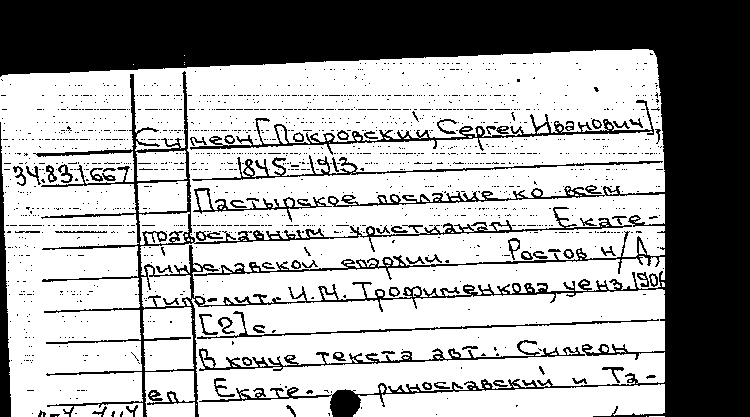 Симеон [Покровский, Сергей Иванович],
34.83.1667
1845-1913.
Пастырское послание ко всем
православным христианам Екате-
ринославской епархии. Ростов н/Д,
типо-лит. И.Н. Трофименкова, ценз. 1906
[2] с.
В конце текста авт.: Симеон,
еп. Екате- ринославский и Та-